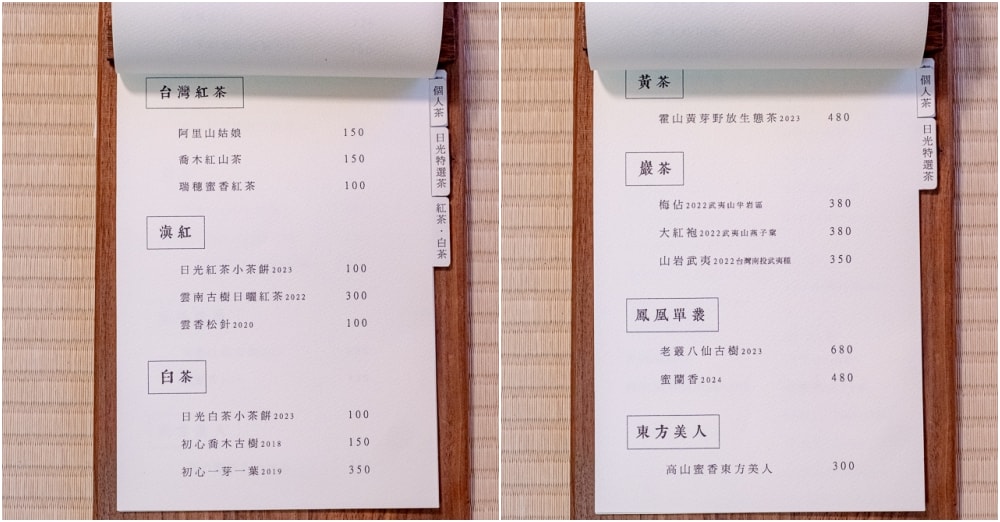 台灣紅茶
阿里山姑娘 150
喬木紅山茶 150
瑞穗蜜香紅茶 100
滇紅
日光紅茶小茶餅2023 100
雲南古樹日曬紅茶2022 300
雲香松針2020 100
白茶
日光白茶小茶餅2023 100
初心喬木古樹2018 150
初心一芽一葉2019 350
個人茶
日光特選茶
紅茶·白茶
黃茶
霍山黃芽野放生態茶2023 480
巖茶
梅佔2022武夷山半岩區 380
大紅袍2022武夷山燕子窠 380
山岩武夷2022台灣南投武夷種 350
鳳凰單叢
老叢八仙古樹2023 680
蜜蘭香2024 480
東方美人
高山蜜香東方美人 300
個人茶
日光特選茶